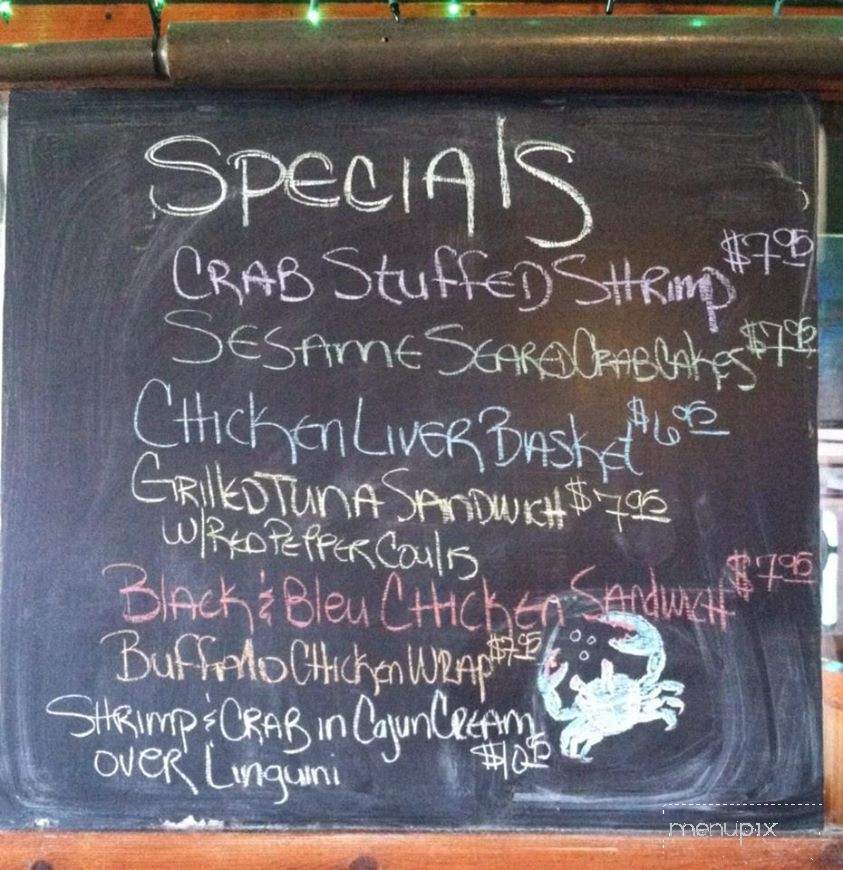 SPECIALS
CRAB STUFFED SHRIMP $7.95
SESAME SEARED CRAB CAKES $7.95
CHICKEN LIVER BASKET $6.95
GRILLED TUNA SANDWICH $7.95
W/RED PEPPER COULIS
BLACK & BLEU CHICKEN SANDWICH $7.95
BUFFALO CHICKEN WRAP $7.95
SHRIMP & CRAB in CAJUN CREAM
OVER Linguini $10.95
menupix